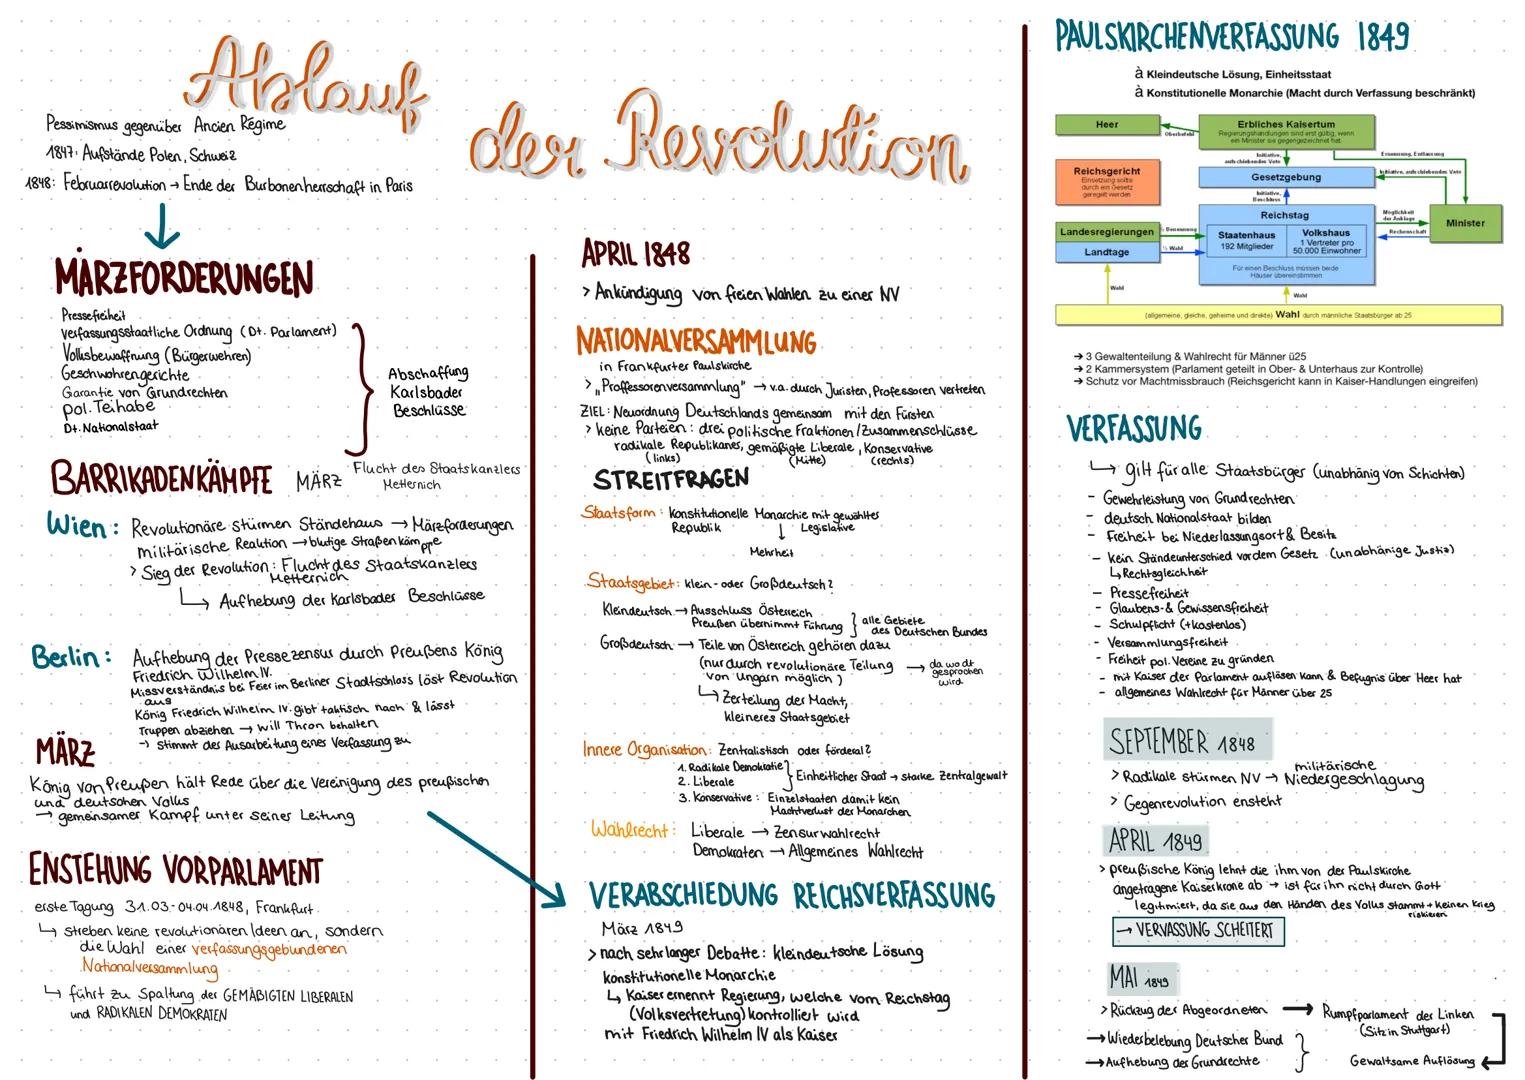 Ablauf
der Revolution
Pessimismus gegenüber Ancien Régime
1847: Aufstände Polen, Schweiz
1848: Februarrevolution → Ende der Burbonenherrschaft in Paris
MÄRZFORDERUNGEN
Pressefreiheit
verfassungsstaatliche Ordnung (Dt. Parlament)
Volksbewaffnung (Bürgerwehren)
Geschwohrengerichte
Garantie von Grundrechten
pol. Teihabe
Dt. Nationalstaat
Abschaffung
Karlsbader
Beschlüsse
BARRIKADENKÄMPFE MÄRZ
Flucht des Staatskanzlers
Metternich
Wien: Revolutionäre stürmen Ständehaus → Märzforderungen
militärische Reaktion → blutige Straßenkämpfe
> Sieg der Revolution: Flucht des Staatskanzlers
Metternich
↳ Aufhebung der Karlsbader Beschlüsse
Berlin: Aufhebung der Pressezensur durch Preußens König
Friedrich Wilhelm IV.
Missverständnis bei Feier im Berliner Stadtschloss löst Revolution
aus
König Friedrich Wilhelm IV. gibt taktisch nach & lässt
Truppen abziehen → will Thron behalten
-> stimmt der Ausarbeitung einer Verfassung zu
MÄRZ
König von Preußen hält Rede über die Vereinigung des preußischen
und deutschen Volks
→ gemeinsamer Kampf unter seiner Leitung
ENSTEHUNG VORPARLAMENT
erste Tagung 31.03.-04.04.1848, Frankfurt
↳ streben keine revolutionären Ideen an, sondern
die Wahl einer verfassungsgebundenen
Nationalversammlung
↳ führt zu Spaltung der GEMÄßIGTEN LIBERALEN
und RADIKALEN DEMOKRATEN
APRIL 1848
> Ankündigung von freien Wahlen zu einer NV
NATIONALVERSAMMLUNG
in Frankfurter Paulskirche
> „Proffessorenversammlung" → v.a. durch Juristen, Professoren vertreten
ZIEL: Neuordnung Deutschlands gemeinsam mit den Fürsten
> keine Parteien: drei politische Fraktionen/Zusammenschlüsse
radikale Republikaner, gemäßigte Liberale, Konservative
(links) (Mitte) (rechts)
STREITFRAGEN
Staatsform: Konstitutionelle Monarchie mit gewählter
Republik ↓ Legislative
Mehrheit
Staatsgebiet: klein- oder Großdeutsch?
Kleindeutsch → Ausschluss Österreich
Preußen übernimmt Führung
alle Gebiete
des Deutschen Bundes
Großdeutsch → Teile von Österreich gehören dazu
(nur durch revolutionäre Teilung
von Ungarn möglich)
→ da wo dt
gesprochen
wird
↳ Zerteilung der Macht,
kleineres Staatsgebiet
Innere Organisation: Zentralistisch oder förderal?
1. Radikale Demokratie
2. Liberale
Einheitlicher Staat → starke Zentralgewalt
3. Konservative: Einzelstaaten damit kein
Machtverlust der Monarchen
Wahlrecht: Liberale → Zensurwahlrecht
Demokraten → Allgemeines Wahlrecht
VERABSCHIEDUNG REICHSVERFASSUNG
März 1849
> nach sehr langer Debatte: kleindeutsche Lösung
konstitutionelle Monarchie
↳ Kaiser ernennt Regierung, welche vom Reichstag
(Volksvertretung) kontrolliert wird
mit Friedrich Wilhelm IV als Kaiser
PAULSKIRCHENVERFASSUNG 1849
à Kleindeutsche Lösung, Einheitsstaat
à Konstitutionelle Monarchie (Macht durch Verfassung beschränkt)
Heer
Oberbefehl
Erbliches Kaisertum
Regierungshandlungen sind erst gültig, wenn
ein Minister sie gegengezeichnet hat
Initiative,
aufschiebendes Veto
Ernennung, Entlassung
Reichsgericht
Einsetzung sollte
durch ein Gesetz
geregelt werden
Gesetzgebung
Initiative, aufschiebendes Veto
Initiative,
Beschluss
Landesregierungen
½ Benennung
Landtage
½ Wahl
Reichstag
Staatenhaus
192 Mitglieder
Volkshaus
1 Vertreter pro
50.000 Einwohner
Für einen Beschluss müssen beide
Häuser übereinstimmen
Möglichkeit
der Anklage
Rechenschaft
Minister
Wahl
Wahl
(allgemeine, gleiche, geheime und direkte) Wahl durch männliche Staatsbürger ab 25
→ 3 Gewaltenteilung & Wahlrecht für Männer ü25
→ 2 Kammersystem (Parlament geteilt in Ober- & Unterhaus zur Kontrolle)
→ Schutz vor Machtmissbrauch (Reichsgericht kann in Kaiser-Handlungen eingreifen)
VERFASSUNG
↳ gilt für alle Staatsbürger (unabhänig von Schichten)
- Gewehrleistung von Grundrechten
- deutsch Nationalstaat bilden
- Freiheit bei Niederlassungsort & Besitz
- kein Ständeunterschied vor dem Gesetz (unabhänige Justiz)
↳ Rechtsgleichheit
- Pressefreiheit
- Glaubens- & Gewissensfreiheit
- Schulpflicht (+kostenlos)
- Versammlungsfreiheit
- Freiheit pol. Vereine zu gründen
- mit Kaiser der Parlament auflösen kann & Befugnis über Heer hat
- allgemeines Wahlrecht für Männer über 25
SEPTEMBER 1848
> Radikale stürmen NV → militärische
Niedergeschlagung
> Gegenrevolution ensteht
APRIL 1849
> preußische König lehnt die ihm von der Paulskirche
angetragene Kaiserkrone ab → ist für ihn nicht durch Gott
legitimiert, da sie aus den Händen des Volks stammt + keinen Krieg
riskieren
→ VERVASSUNG SCHEITERT
MAI 1849
> Rückzug der Abgeordneten → Rumpfparlament der Linken
(Sitz in Stuttgart)
→ Wiederbelebung Deutscher Bund
→ Aufhebung der Grundrechte
Gewaltsame Auflösung